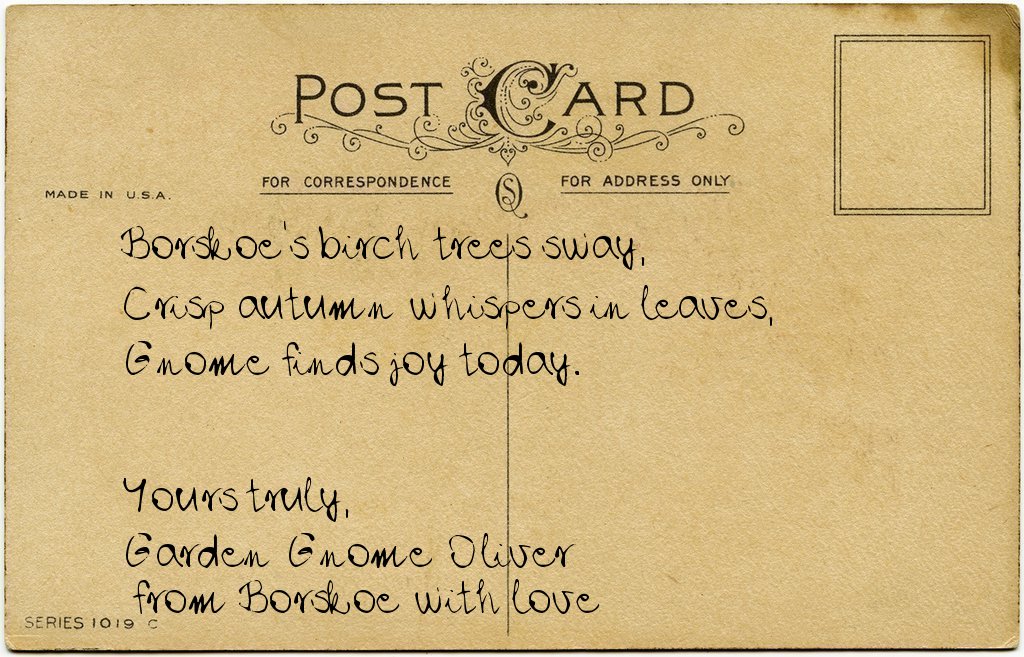 POST CARD
FOR CORRESPONDENCE
FOR ADDRESS ONLY
MADE IN U.S.A.
Borskoe's birch trees sway,
Crisp autumn whispers in leaves,
Gnome finds joy today.
Yours truly,
Garden Gnome Oliver
from Borskoe with love
SERIES 1019 C